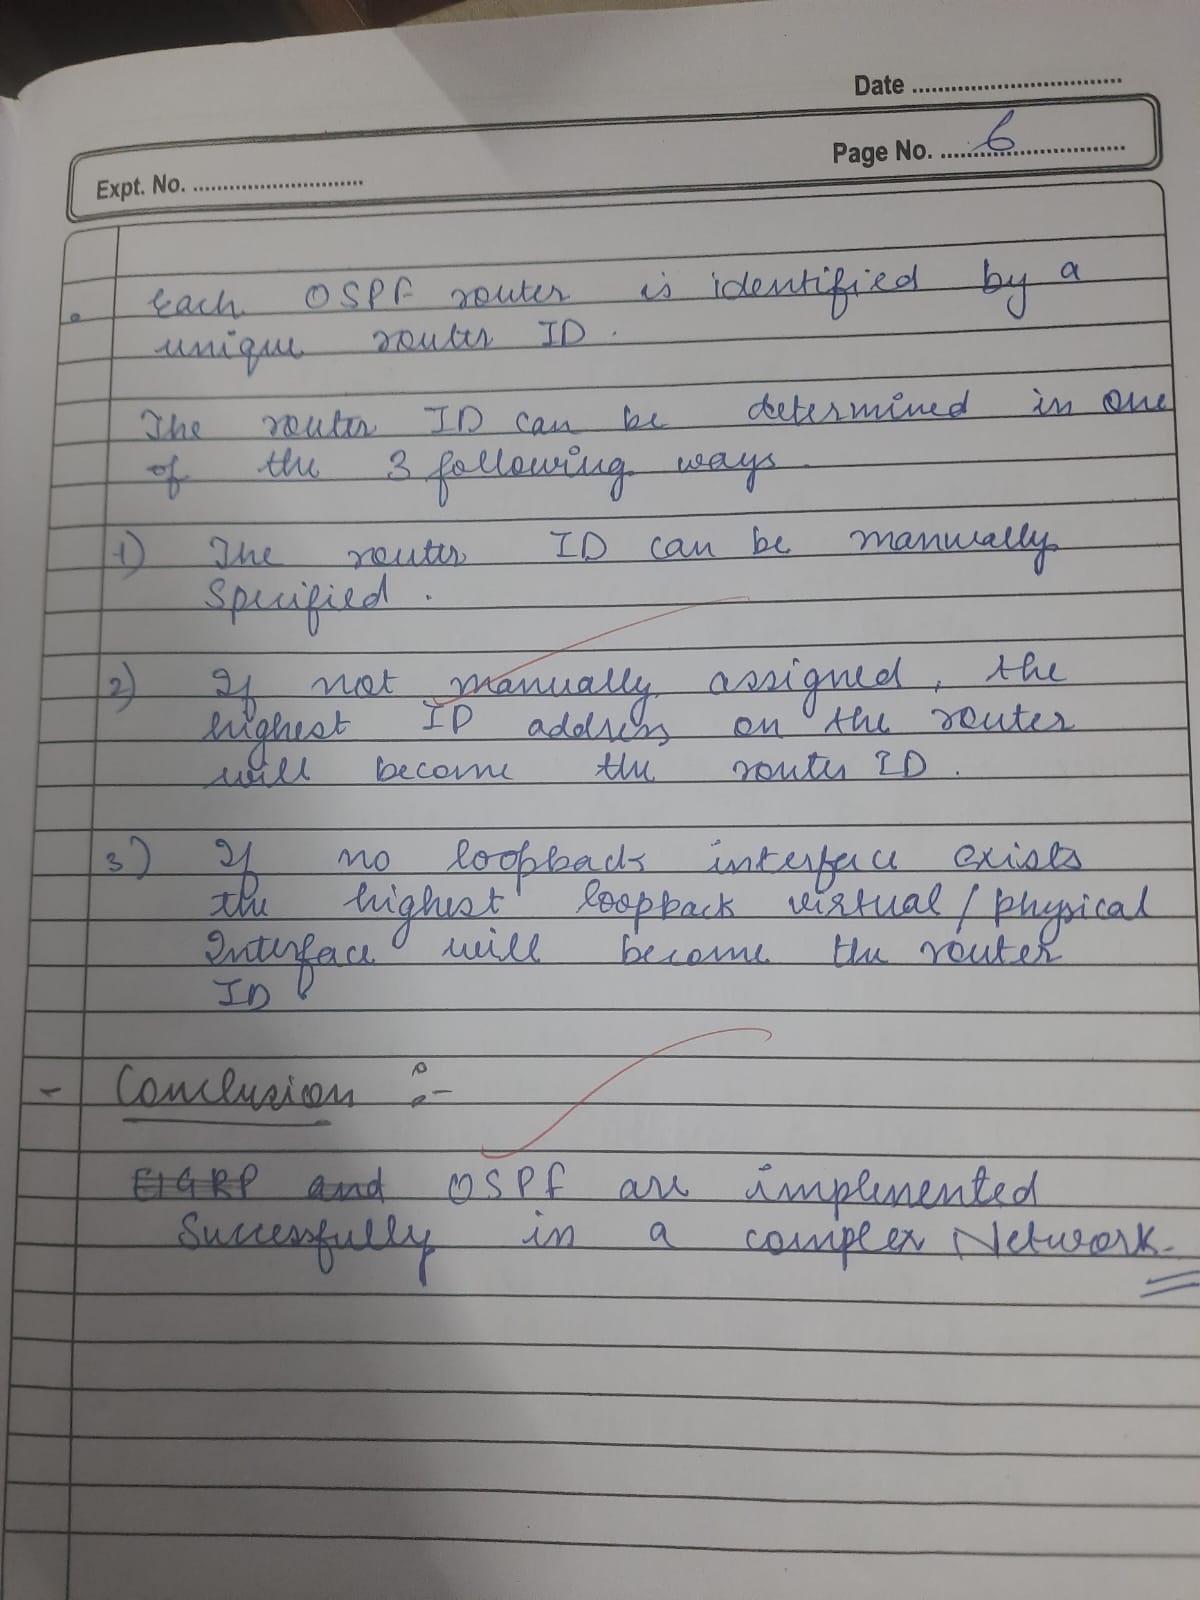 Date ................................
Page No. .....6.....
Expt. No. ............................
. Each OSPF router is identified by a
unique router ID.
The router ID can be determined in one
of the 3 following ways.
1) The router ID can be manually
Specified.
2) If not manually assigned, the
highest IP address on the router
will become the router ID.
3) If no loopback interface exists
the highest loopback virtual/physical
Interface will become the router
ID
- Conclusion :-
EIGRP and OSPF are implemented
Successfully in a complex Network.